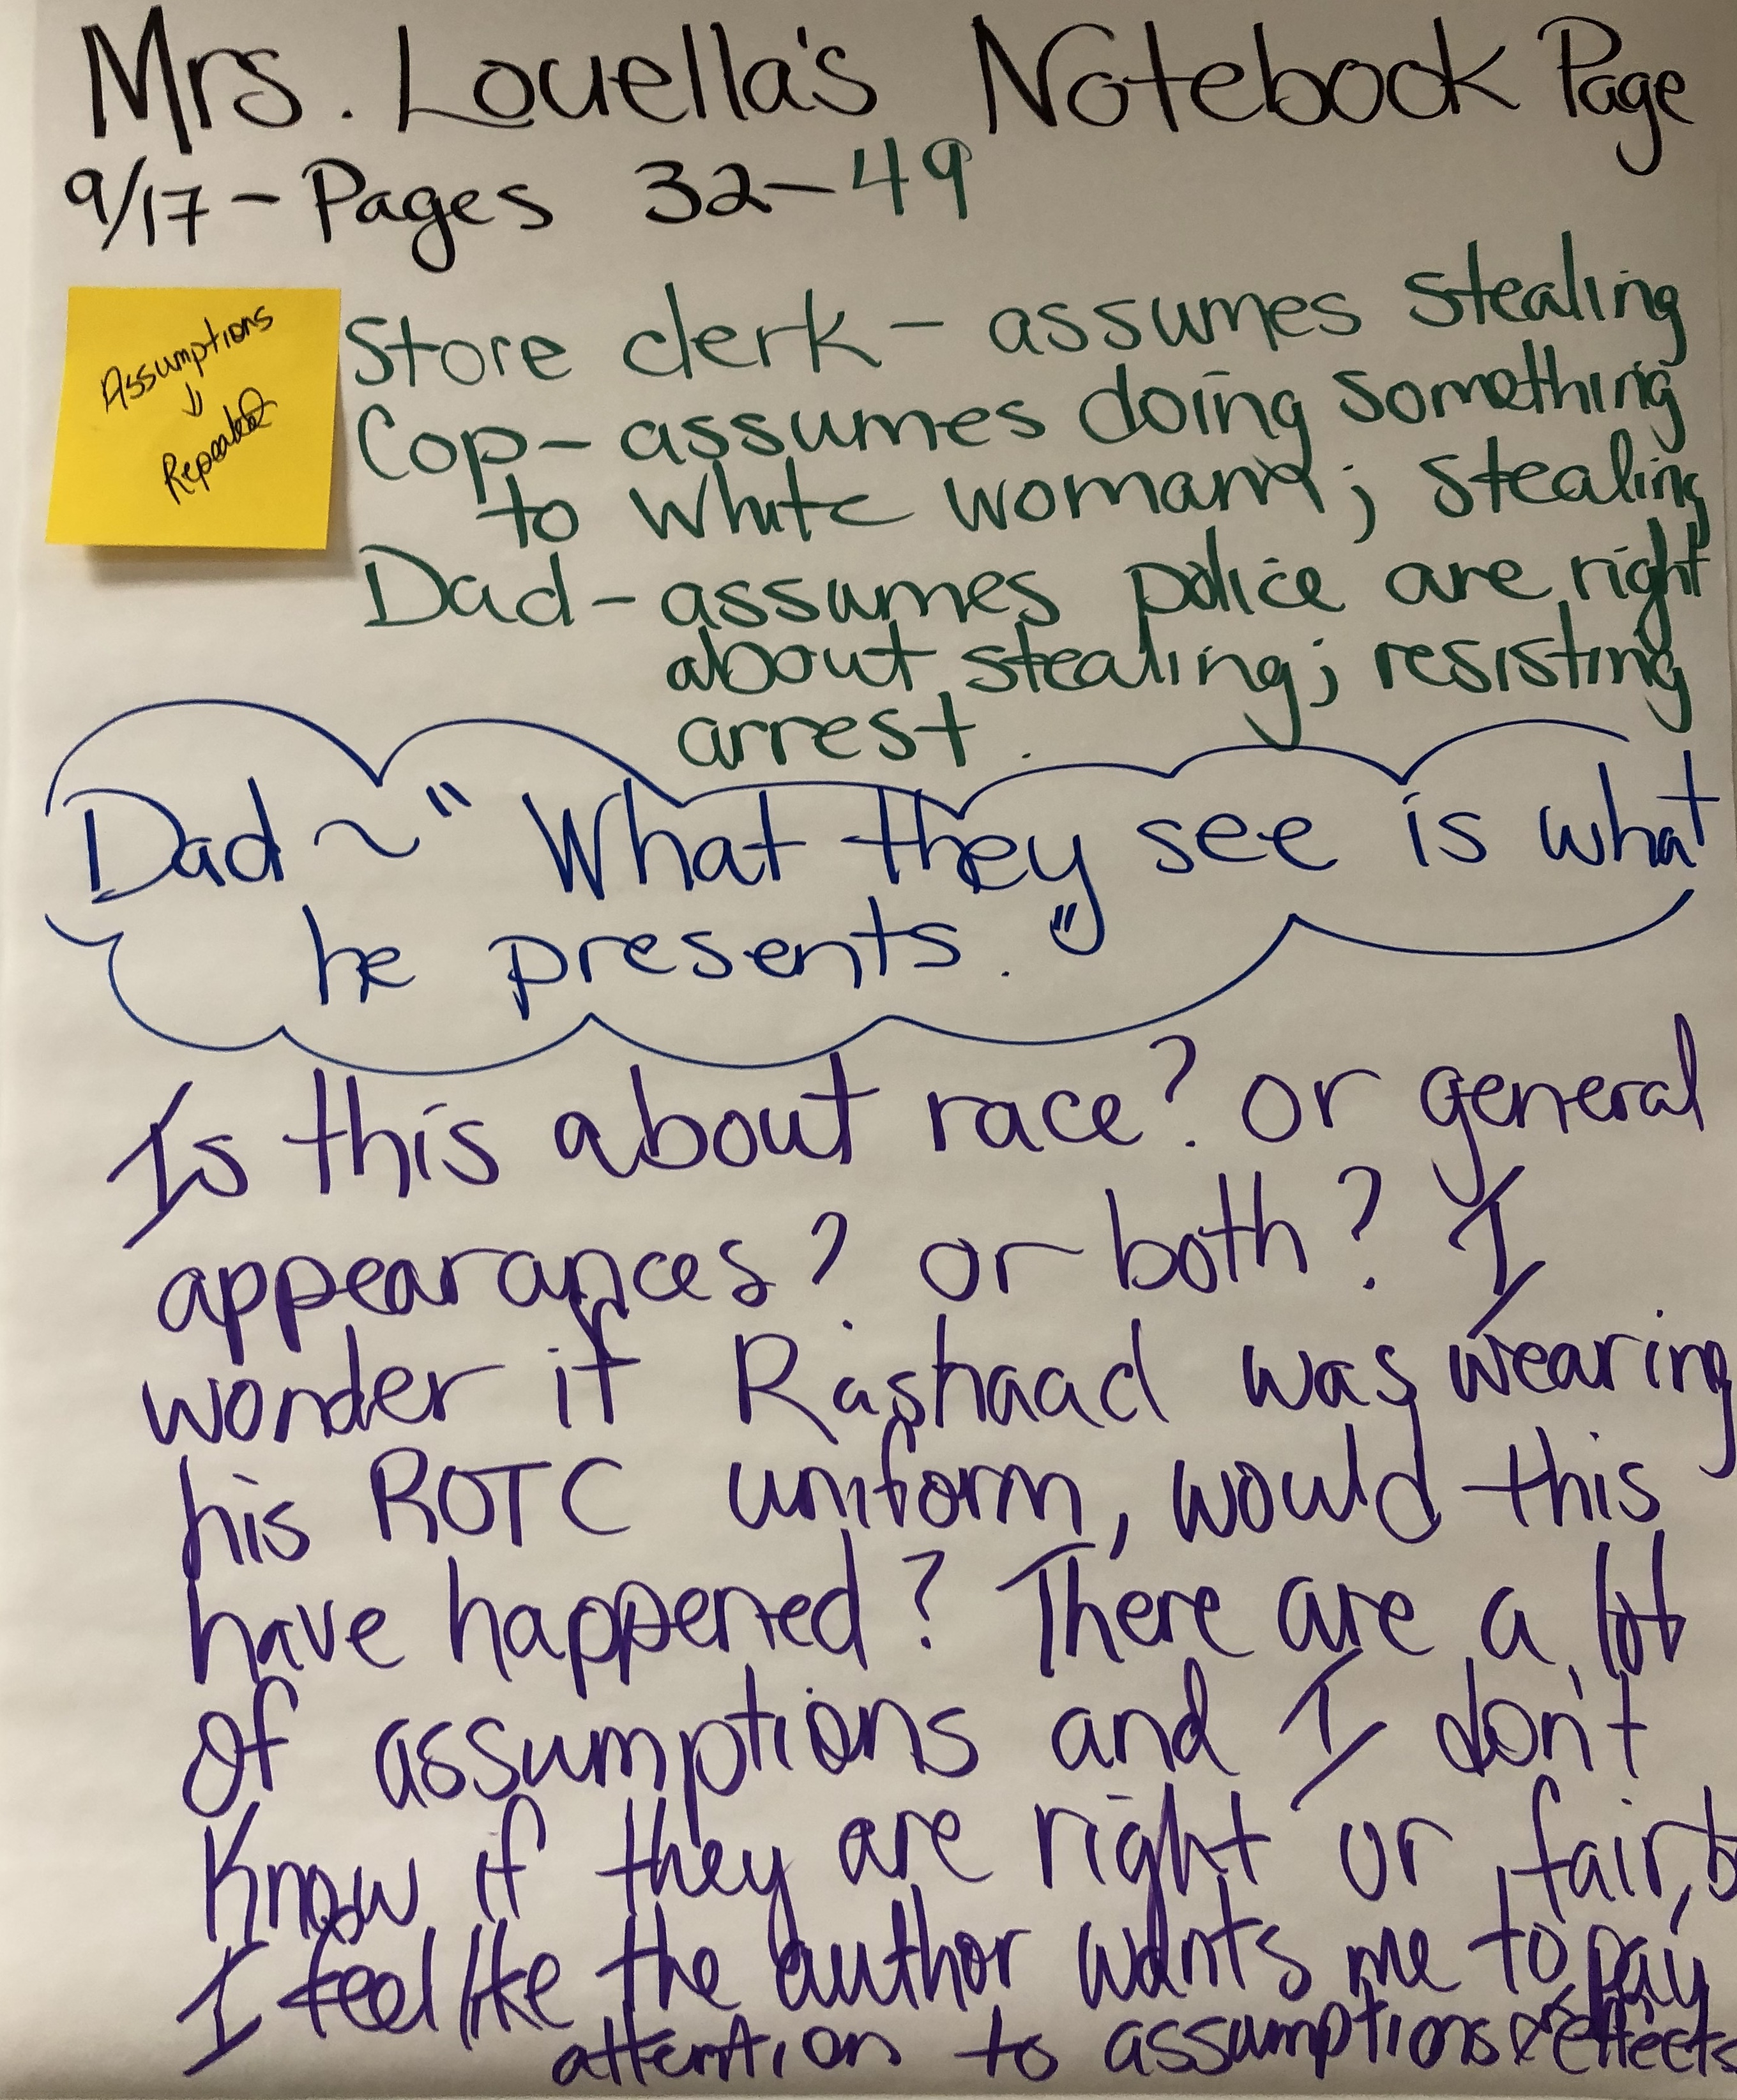 Mrs. Louella's Notebook Page
9/17 - Pages 32-49
Assumptions
↓
Repeated
Store clerk - assumes stealing
Cop - assumes doing something
to white woman; stealing
Dad - assumes police are right
about stealing; resisting
arrest.
Dad ~ "What they see is what
he presents."
Is this about race? or general
appearances? or both? I
wonder if Rashaad was wearing
his ROTC uniform, would this
have happened? There are a lot
of assumptions and I don't
know if they are right or fair, b
I feel like the author wants me to pay
attention to assumptions & effects